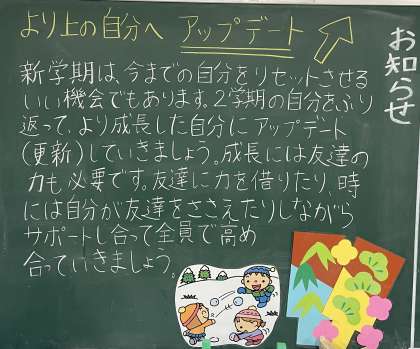 より上の自分へ アップデート
お知らせ
新学期は、今までの自分をリセットさせる
いい機会でもあります。2学期の自分をふり
返って、より成長した自分にアップデート
(更新)していきましょう。成長には友達の
力も必要です。友達に力を借りたり、時
には自分が友達をささえたりしながら
サポートし合って全員で高め
合っていきましょう。